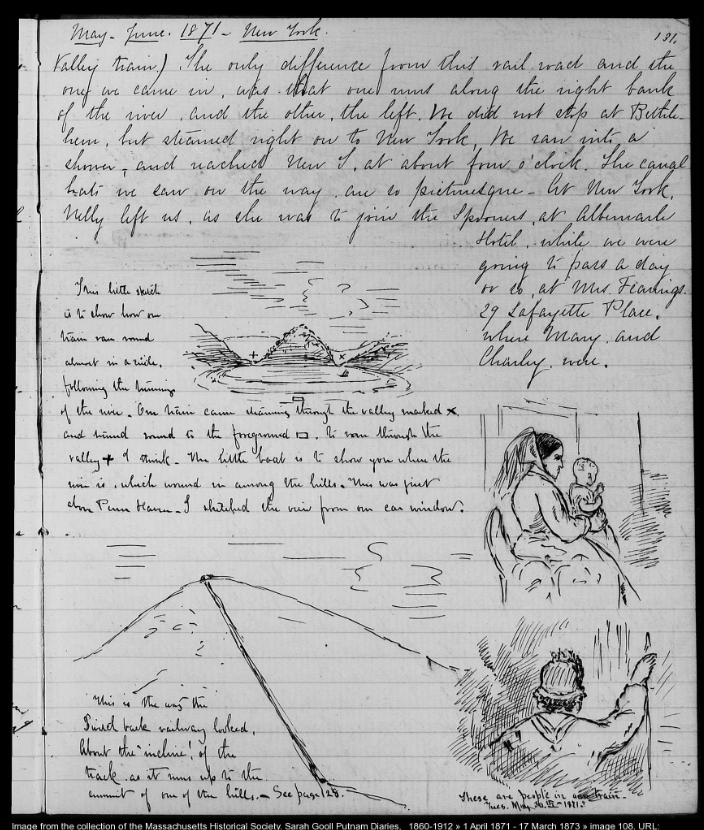 May - June. 1871 - New York.
131.
Valley train.) The only difference from this rail road and the
one we came in, was that one runs along the right bank
of the river, and the other, the left. We did not stop at Bethle-
hem, but steamed right on to New York, We ran into a
shower, and reached New Y. at about four o'clock. The canal
boats we saw on the way are so picturesque - At New York,
Nelly left us, as she was to join the Spooners, at Albemarle
Hotel, while we were
going to pass a day
or so, at Mrs. Fearings.
29 Lafayette Place,
where Mary, and
Charley were.
This little sketch
is to show how our
train ran round
almost in a circle,
following the turning
of the river. Our train came steaming through the valley marked x,
and wound round to the foreground □, to run through the
valley + I think - The little boat is to show you where the
river is, which wound in among the hills. This was just
above Penn Haven - I sketched the view from our car window.
This is the way the
railway looked.
About the "incline" of the
track as it runs up to the
summit of one of the hills. - See page 128.
These are people in our train -
Tues. May 30th 1871.
Image from the collection of the Massachusetts Historical Society. Sarah Gooll Putnam Diaries, 1860-1912 » 1 April 1871 - 17 March 1873 » image 108, URL: